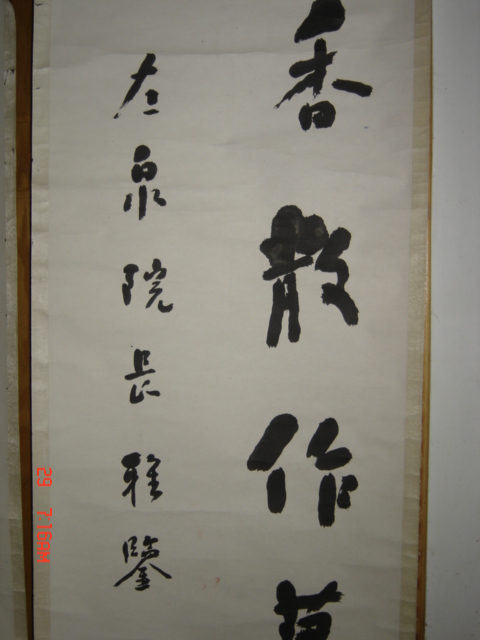 香散作
左泉院長雅鑒
29 7:16AM